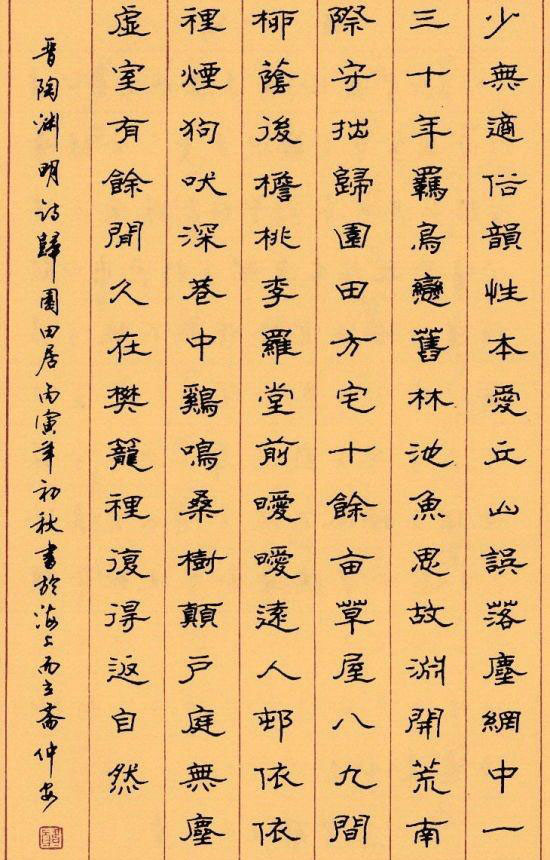 少無適俗韻性本愛丘山誤落塵網中一
三十年羈鳥戀舊林池魚思故淵開荒南
際守拙歸園田方宅十餘亩草屋八九間
柳蔭後檐桃李羅堂前曖曖遠人邨依依
裡煙狗吠深巷中鷄鳴桑樹顛戶庭無塵
虛室有餘閒久在樊籠裡復得返自然
晉陶渊明诗歸園田居丙寅年初秋書於海上而立齋仲安